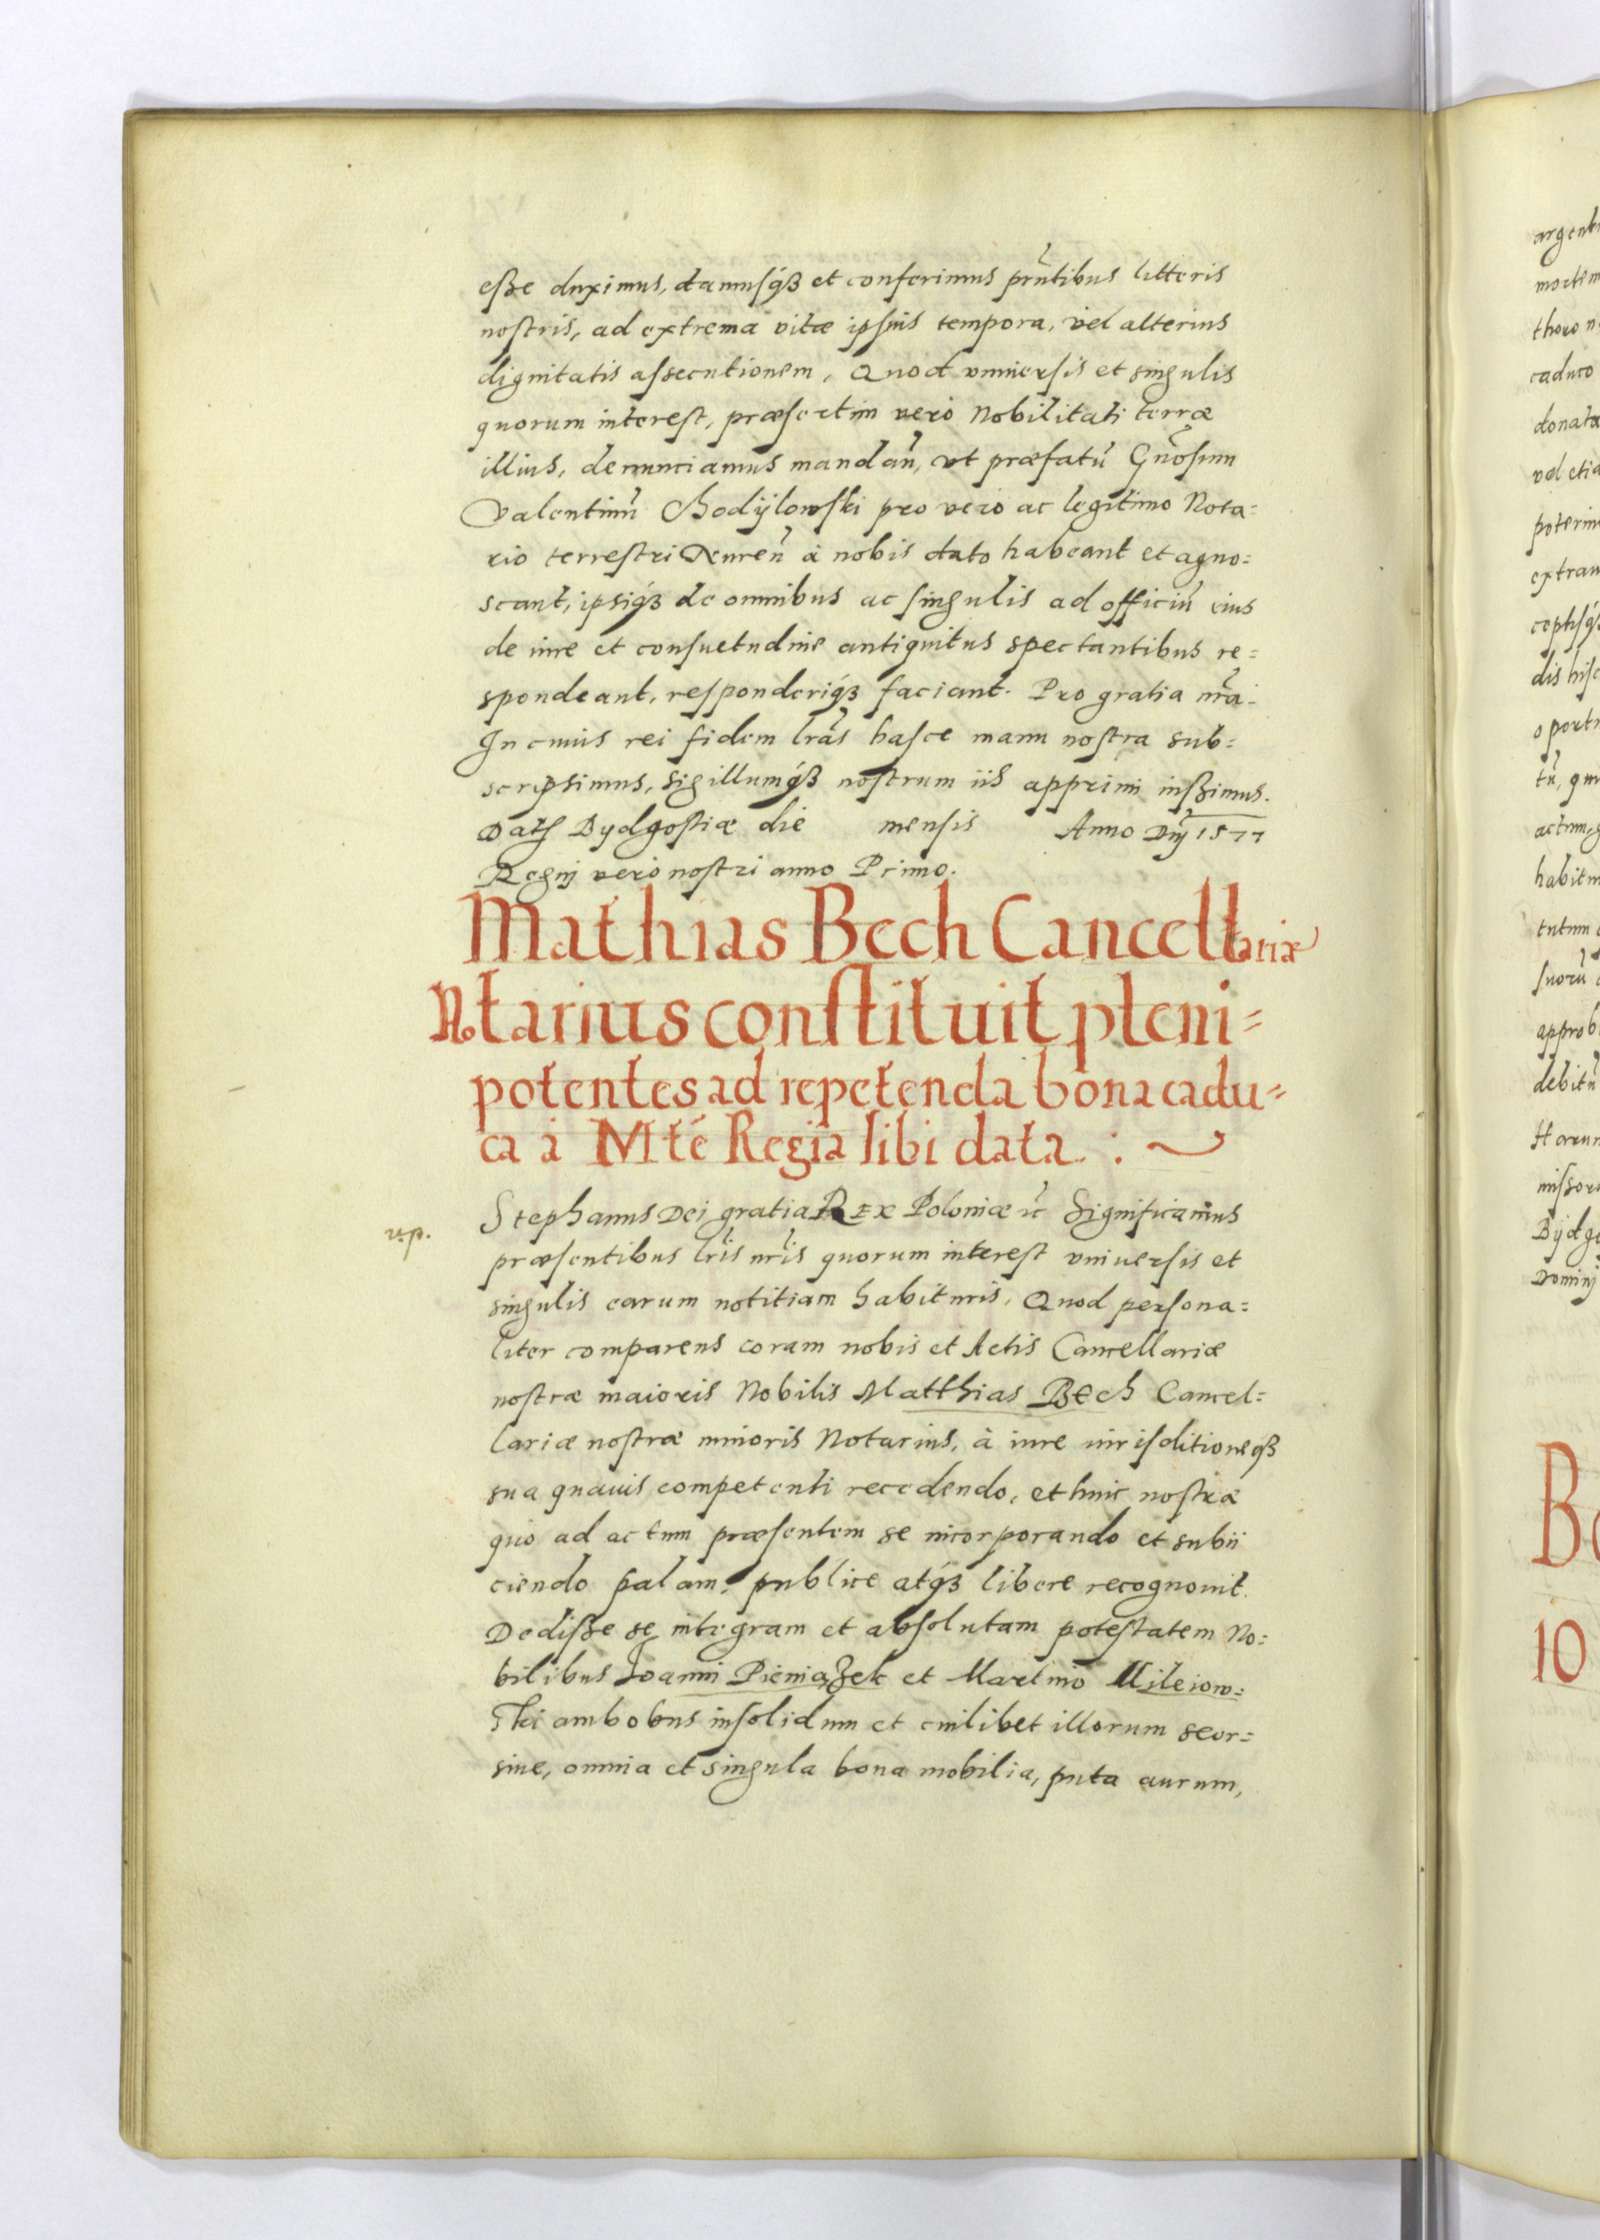 eße duximus, damusq́ꝫ et conferimus pñtibus litteris
nostris, ad extrema vitæ ipsius tempora, vel alterius
dignitatis assecutionem, Quod vniuersis et singulis
quorum interest, præsertim vero Nobilitati terræ
illius, denunciamus mandañ, vt præfatũ Gñosum
Valentinũ Chodÿlowski pro vero ac legitimo Nota=
rio terrestri à nobis dato habeant et agno=
scant, ipsiq́ꝫ de omnibus ac singulis ad officiũ eius
de iure et consuetudine antiquitus spectantibus re=
spondeant, responderiq́ꝫ faciant. Pro gratia nr̃a.
In cuius rei fidem lr̃as hasce manu nostra sub=
scripsimus, sigillumq́ꝫ nostrum iis apprimi iußimus.
Datꝭ Bydgostiæ die mensis Anno Dñj 1577
Regnj vero nostri anno Primo.
Mathias Bech Cancellariæ
Notarius constituit pleni=
potentes ad repetenda bona cadu=
ca à Mte Regia sibi data . : ~
Stephanus Dei gratia REX Poloniæ ꝛc̃ Significamus
v.p.
præsentibus lr̃is nr̃is quorum interest vniuersis et
singulis earum notitiam habituris, Quod persona=
liter comparens coram nobis et Actis Cancellariæ
nostræ maioris Nobilis Matthias BEch Cancel=
lariæ nostræ minoris Notarius, à iure iurisditioneqꝫ
sua quauis competenti recedendo, et huic nostræ
quo ad actum præsentem se incorporando et subii
ciendo palam, publice atq́ꝫ libere recognouit.
Dediße se integram et absolutam potestatem No=
bilibus Joanni Pieniążek et Martino Mileiow=
ski ambobus insolidum et cuilibet illorum seor=
siue, omnia et singula bona mobilia, puta aurum,
argent
mortem
thoro n
caduco
donata
vel etia
poterin
extrau
ceptisq́
dis hisc
oport
tũ, qu
actum, g
habitu
tutum
suorũ
approb
debitũ
Harum
missor
Bÿdg
Dominj
10